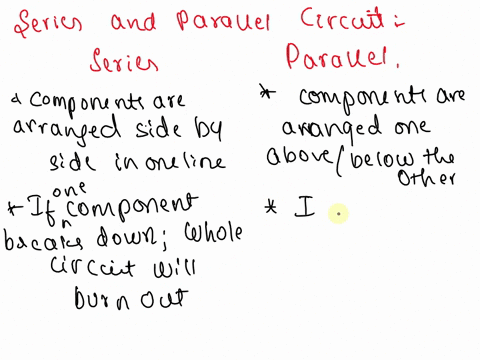 Series and Parallel Circuit:-
Series
* Components are
arranged side by
side in one line
* If one component
breaks down; whole
circuit will
burn out
Parallel.
* components are
arranged one
above/below the
other
* I